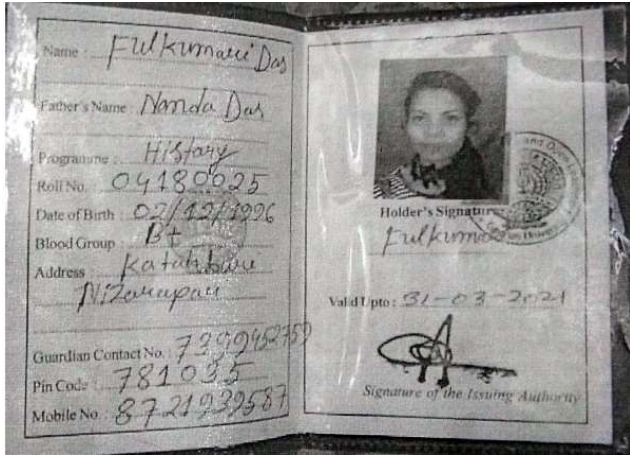 Name : Fulkumari Das
Father's Name : Nanda Das
Programme : History
Roll No. 04180025
Date of Birth : 02/12/1996
Blood Group : B+
Address :
Guardian Contact No. 7399452759
Pin Code : 781035
Mobile No. 8721939587
and Open
Holder's Signature
Fulkuma
Valid Upto : 31-03-2021
Signature of the Issuing Authority